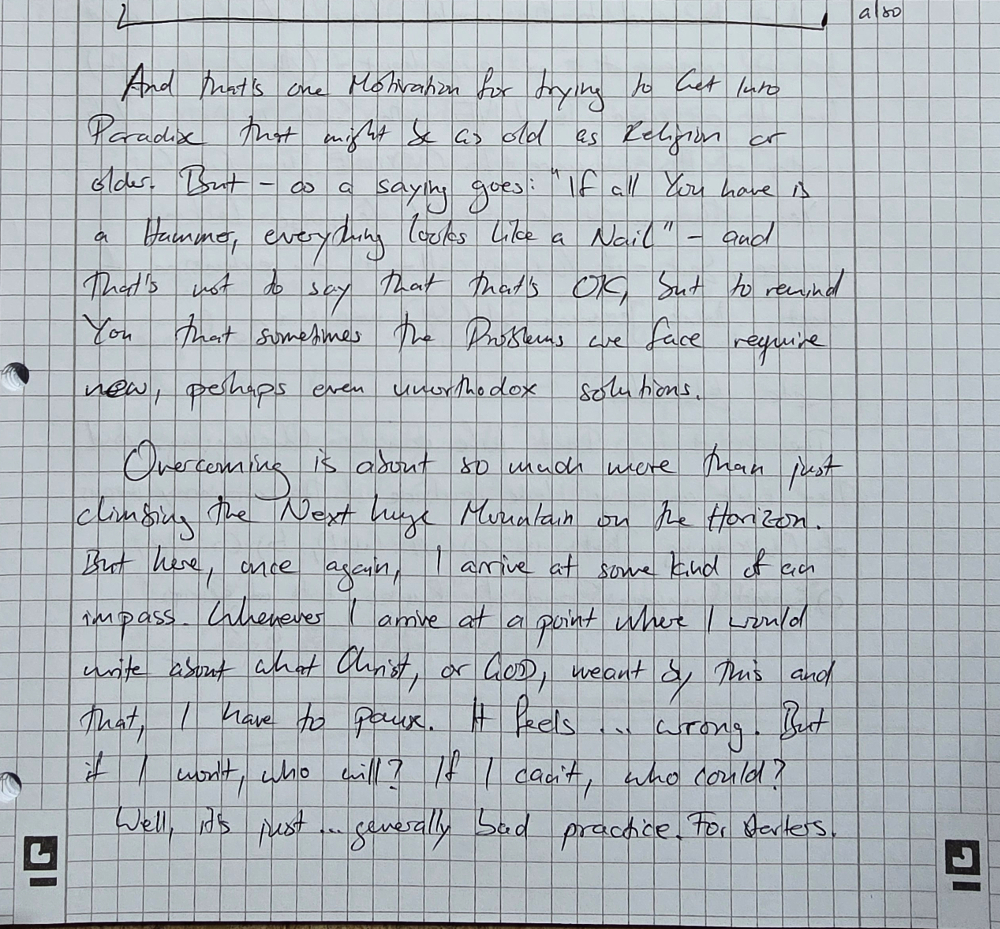 also
And that's one Motivation for trying to Get Into
Paradise that might be as old as Religion or
older. But - as a saying goes: "If all You have is
a Hammer, everything looks like a Nail" - and
that's not to say that that's OK, but to remind
You that sometimes the Problems we face require
new, perhaps even unorthodox solutions.
Overcoming is about so much more than just
climbing the Next huge Mountain on the Horizon.
But here, once again, I arrive at some kind of an
impass. Whenever I arrive at a point where I would
write about what Christ, or GOD, meant by this and
that, I have to pause. It feels ... wrong. But
if I won't, who will? If I can't, who could?
Well, it's just ... generally bad practice. For starters.